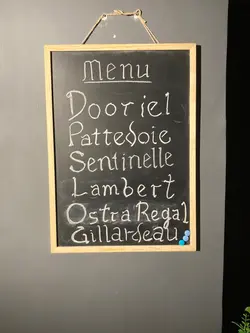 Menu
Dooriel
Pattedoie
Sentinelle
Lambert
Ostra Regal
Gillardeau